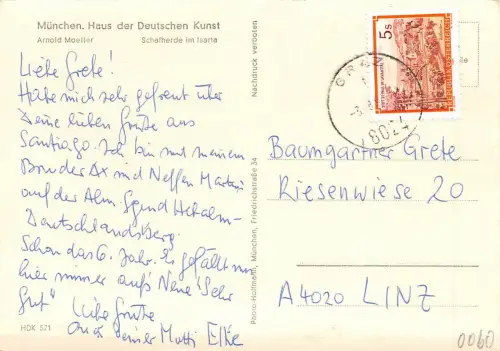 München. Haus der Deutschen Kunst
Arnold Moeller Schafherde im Isartal
Liebe Grete!
Habe mich sehr gefreut über
Deine lieben Grüße aus
Santiago. Ich bin mit meinem
Bruder Ax und Neffen Martin
auf der Alm. Gegend
Deutschlandsberg.
Schon das 6. Jahr. Es gefällt mir
hier immer aufs Neue "Sehr
Gut" Liebe Grüße
Deiner Motti Elke
HDK 571
Nachdruck verboten
Photo-Hoffmann, München, Friedrichstraße 34
5s
GRAZ
8024
Baumgartner Grete
Riesenwiese 20
A 4020 LINZ
0060